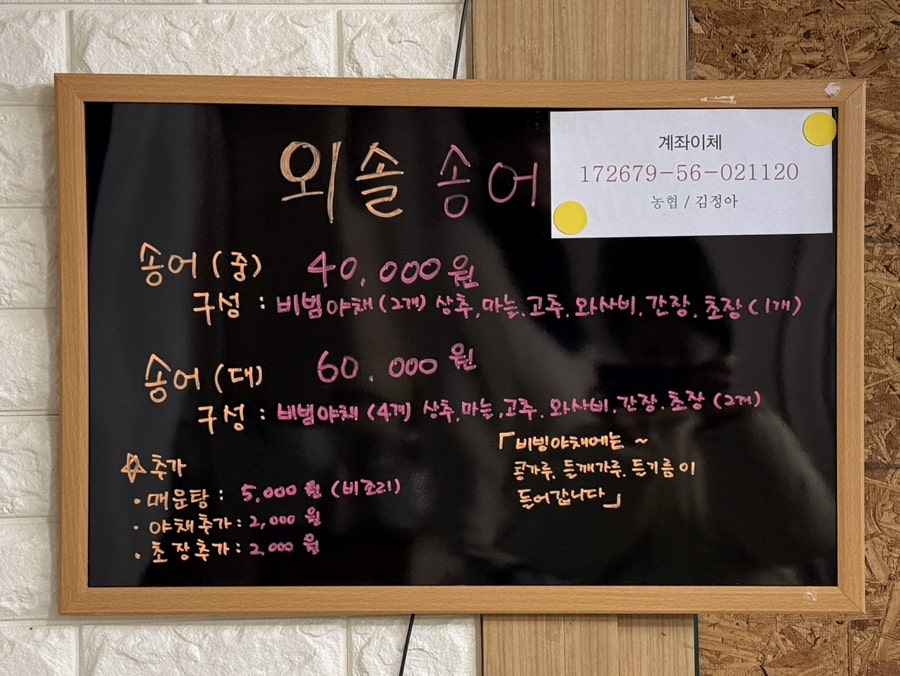 외솔 송어
계좌이체
172679-56-021120
농협 / 김정아
송어 (중) 40,000원
구성 : 비빔야채 (2개) 상추, 마늘, 고추, 와사비, 간장, 초장 (1개)
송어 (대) 60,000원
구성 : 비빔야채 (4개) 상추, 마늘, 고추, 와사비, 간장, 초장 (2개)
「비빙야채에는 ~
콩가루, 들깨가루, 들기름이
들어갑니다」
☆ 추가
• 매운탕 : 5,000원 (비조리)
• 야채추가 : 2,000원
• 초장추가 : 2,000원